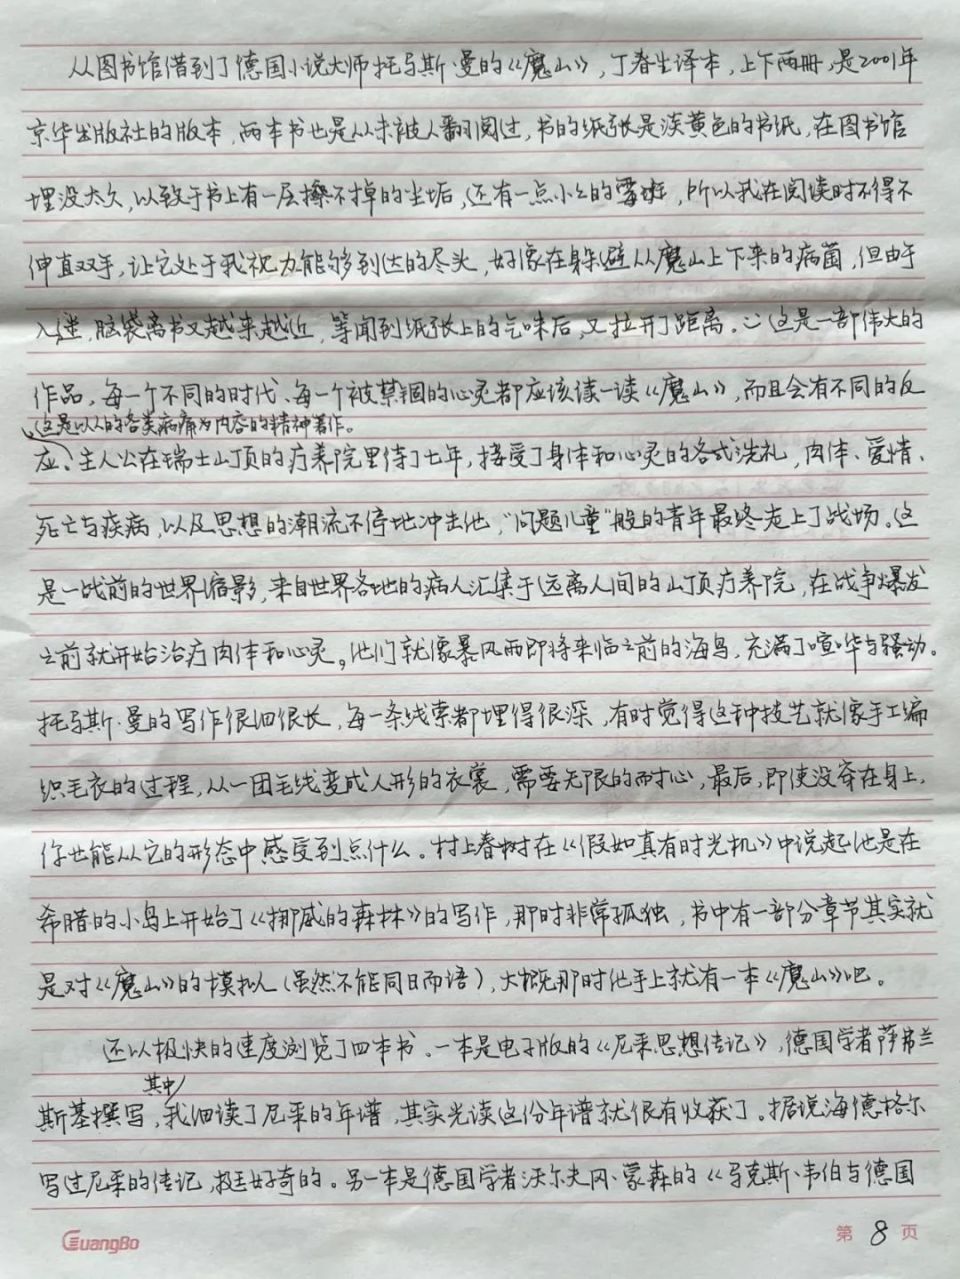 从图书馆借到了德国小说大师托马斯·曼的《魔山》，丁春生译本，上下两册，是2001年
京华出版社的版本，两本书也是从未被人翻阅过，书的纸张是淡黄色的书纸，在图书馆
埋没太久，以致于书上有一层擦不掉的尘垢，还有一点小小的霉斑，所以我在阅读时不得不
伸直双手，让它处于我视力能够到达的尽头，好像在躲避从魔山上下来的病菌，但由于
入迷，脑袋离书又越来越近，等闻到纸张上的气味后，又拉开了距离。这是一部伟大的
作品，每一个不同的时代、每一个被禁锢的心灵都应该读一读《魔山》，而且会有不同的反
这是以人的各类病痛为内容的精神著作。
应。主人公在瑞士山顶的疗养院里待了七年，接受了身体和心灵的各式洗礼，肉体、爱情、
死亡与疾病，以及思想的潮流不停地冲击他，“问题儿童”般的青年最终走上了战场。这
是一战前的世界缩影，来自世界各地的病人汇集于远离人间的山顶疗养院，在战争爆发
之前就开始治疗肉体和心灵。他们就像暴风雨即将来临之前的海鸟，充满了喧哗与骚动。
托马斯·曼的写作很细很长，每一条线索都埋得很深，有时觉得这种技艺就像手工编
织毛衣的过程，从一团毛线变成人形的衣裳，需要无限的耐心，最后，即使没穿在身上，
你也能从它的形态中感受到点什么。村上春树在《假如真有时光机》中说起他是在
希腊的小岛上开始了《挪威的森林》的写作，那时非常孤独，书中有一部分章节其实就
是对《魔山》的模拟（虽然不能同日而语），大概那时他手上就有一本《魔山》吧。
还以极快的速度浏览了四本书。一本是电子版的《尼采思想传记》，德国学者萨弗兰
其中
斯基撰写，我细读了尼采的年谱，其实光读这份年谱就很有收获了。据说海德格尔
写过尼采的传记，挺好奇的。另一本是德国学者沃尔夫冈·蒙森的《马克斯·韦伯与德国
GuangBo
第 8 页